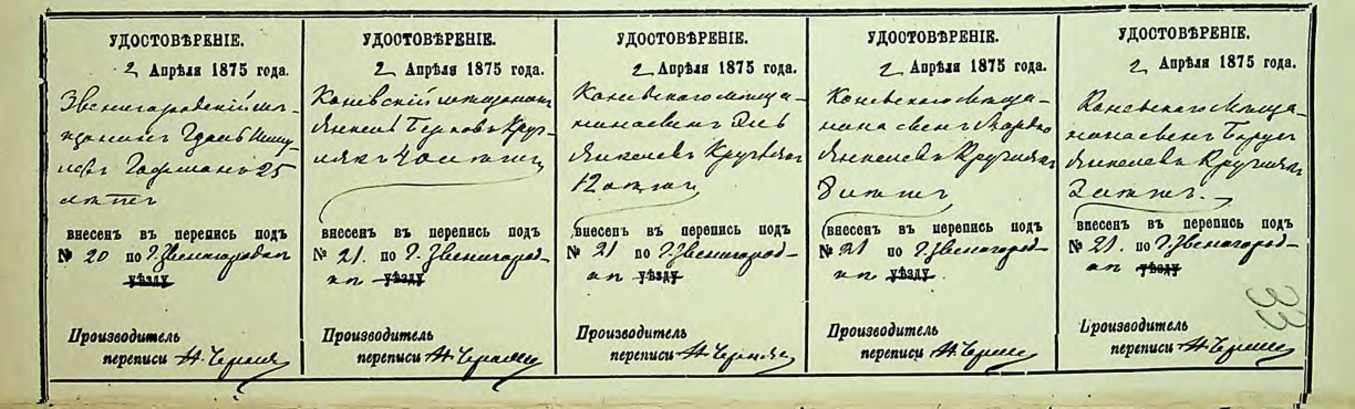 УДОСТОВѢРЕНІЕ.
2 Апрѣля 1875 года.
Звенигородскій мѣ-
щанинъ
Гофманъ 25
лѣтъ
внесенъ въ перепись подъ
№ 20 по Г. Звенигородкѣ
уѣзду
Производитель
переписи
УДОСТОВѢРЕНІЕ.
2 Апрѣля 1875 года.
Каневскій мѣщанинъ
Янкель Берковъ Круг-
лякъ 40 лѣтъ
внесенъ въ перепись подъ
№ 21. по Г. Звенигород-
кѣ уѣзду
Производитель
переписи
УДОСТОВѢРЕНІЕ.
2 Апрѣля 1875 года.
Каневскаго мѣща-
нина сынъ
Янкелевъ Круглякъ
12 лѣтъ
внесенъ въ перепись подъ
№ 21 по Г. Звенигород-
кѣ уѣзду
Производитель
переписи
УДОСТОВѢРЕНІЕ.
2 Апрѣля 1875 года.
Каневскаго мѣща-
нина сынъ
Янкелевъ Круглякъ
8 лѣтъ
внесенъ въ перепись подъ
№ 21 по Г. Звенигород-
кѣ уѣзду.
Производитель
переписи
УДОСТОВѢРЕНІЕ.
2 Апрѣля 1875 года.
Каневскаго мѣща-
нина сынъ
Янкелевъ Круглякъ
2 лѣтъ.
внесенъ въ перепись подъ
№ 21. по Г. Звенигород-
кѣ уѣзду
Производитель
переписи
33